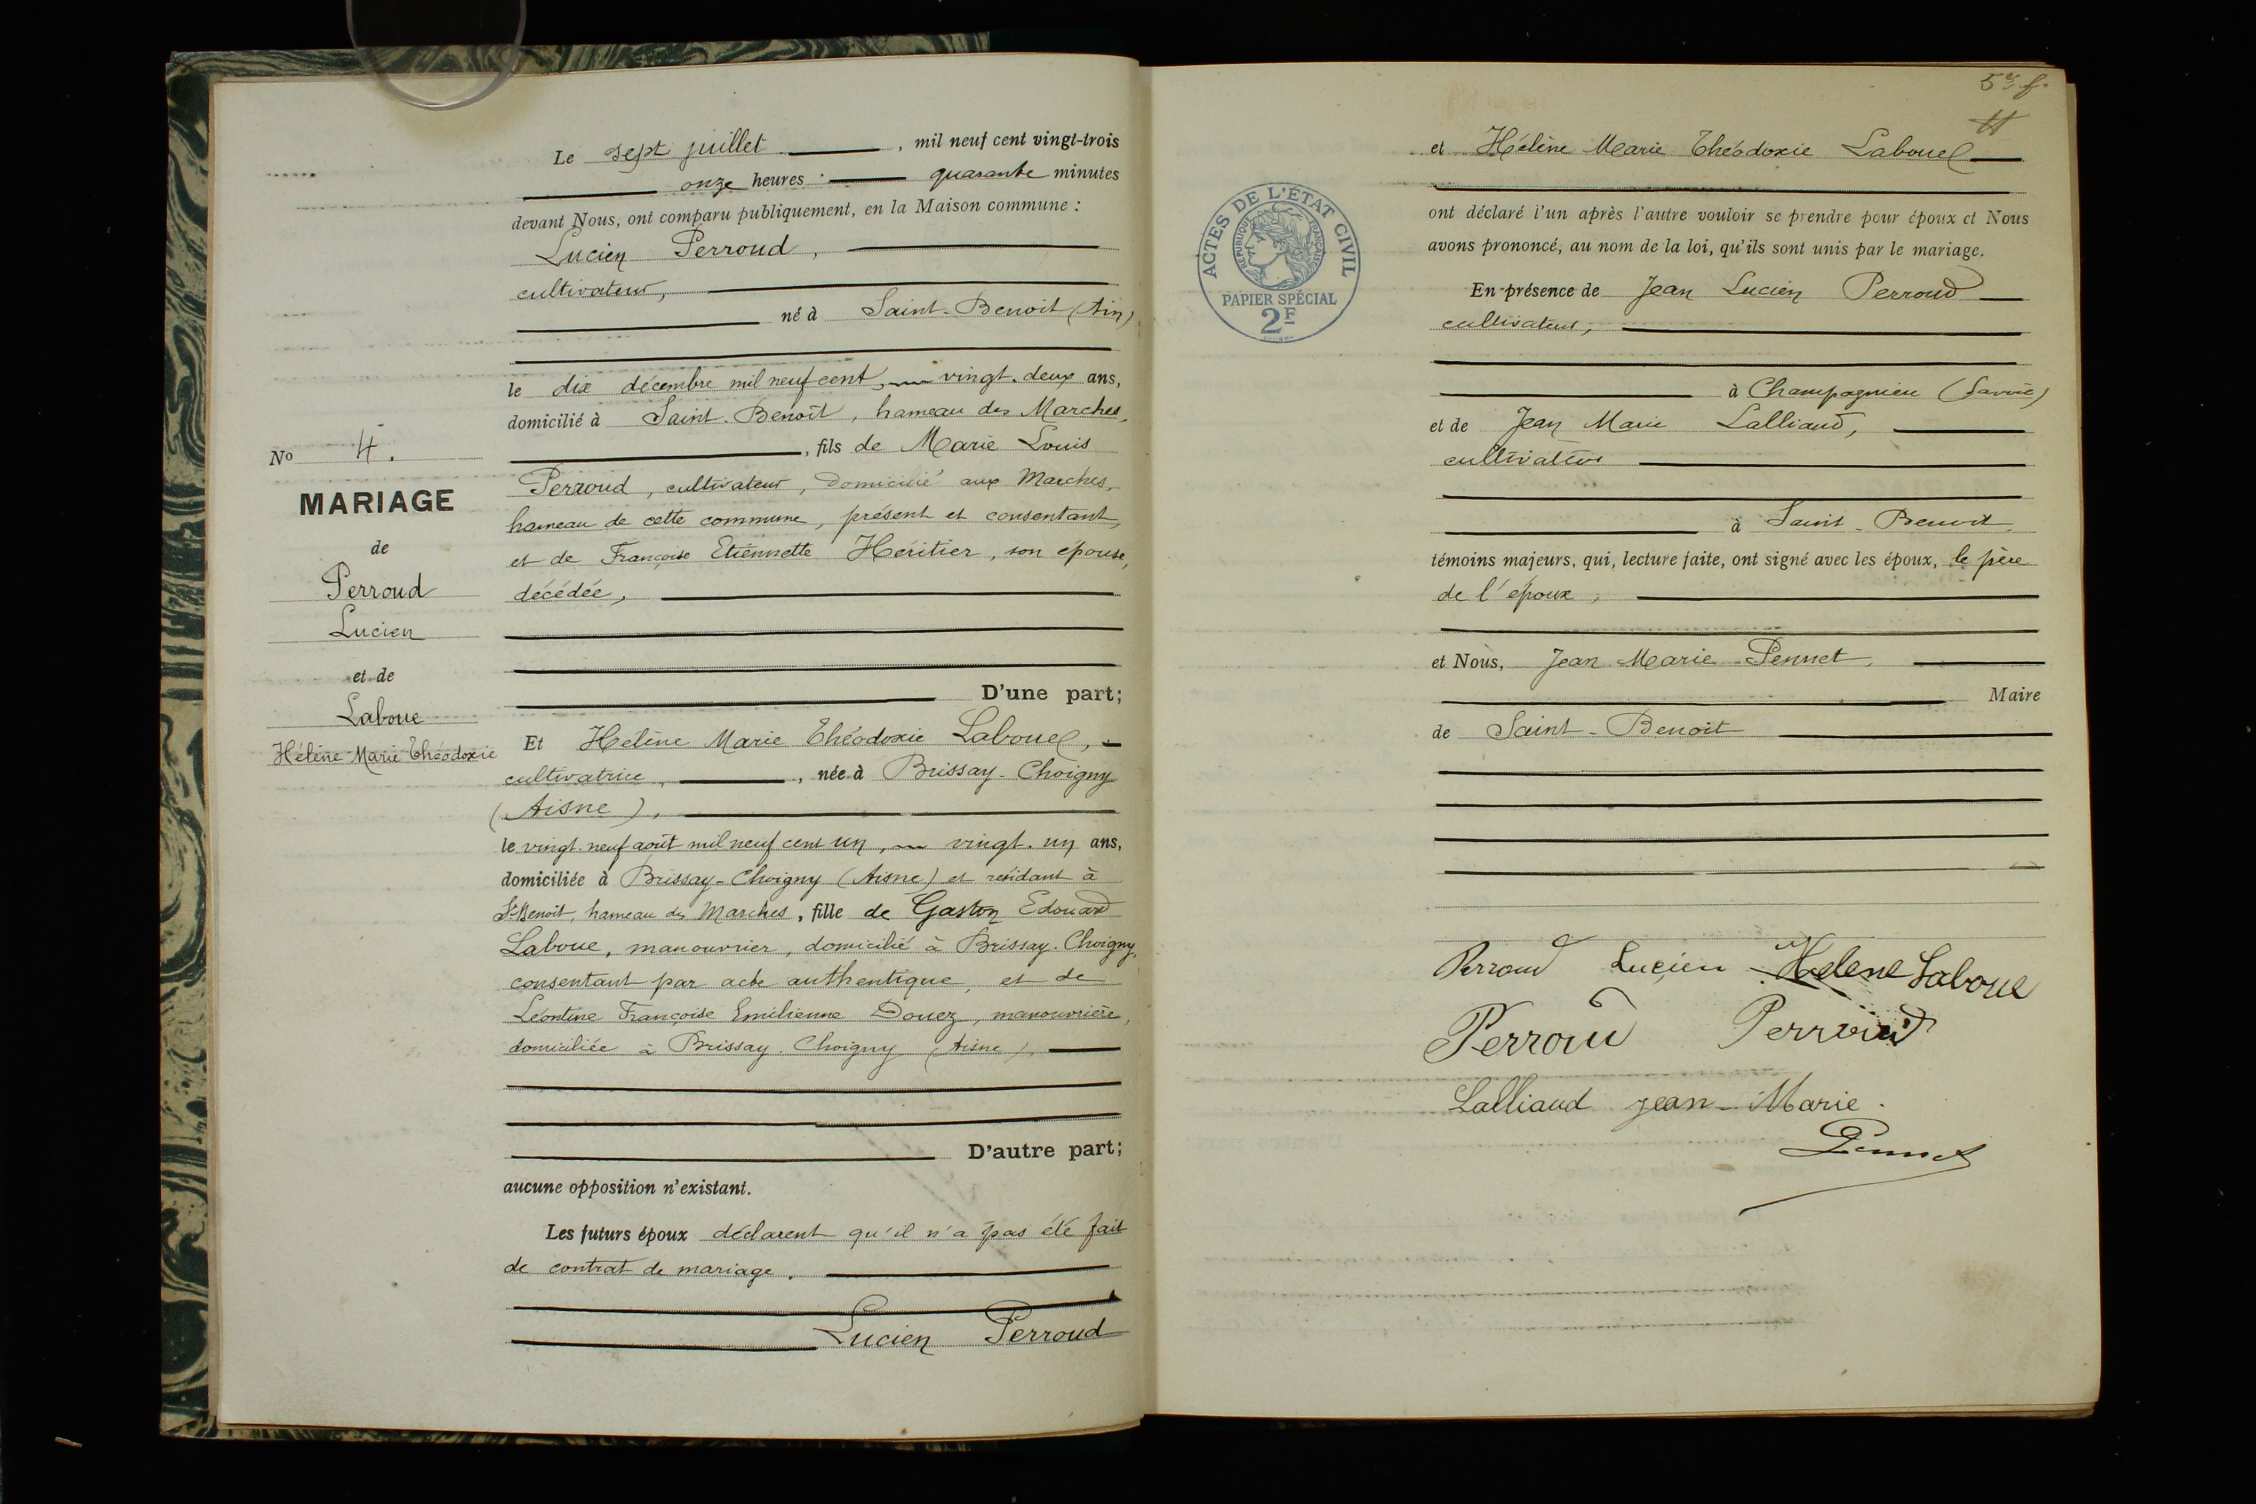 Le sept juillet, mil neuf cent vingt-trois
onze heures quarante minutes
devant Nous, ont comparu publiquement, en la Maison commune :
Lucien Perroud,
cultivateur,
né à Saint-Benoit (Ain)
le dix décembre mil neuf cent, vingt-deux ans,
domicilié à Saint-Benoît, hameau des Marches,
, fils de Marie Louis
Perroud, cultivateur, domicilié aux Marches,
hameau de cette commune, présent et consentant,
et de Françoise Etiennette Héritier, son épouse,
décédée,
D'une part;
No 4.
MARIAGE
de
Perroud
Lucien
et de
Laboue
Hélène Marie Théodoxie
Et Hélène Marie Théodoxie Laboue,
cultivatrice, née à Brissay-Choigny
(Aisne),
le vingt-neuf août mil neuf cent un, vingt-un ans,
domiciliée à Brissay-Choigny (Aisne) et résidant à
St Benoit, hameau des Marches, fille de Gaston Edouard
Laboue, manouvrier, domicilié à Brissay-Choigny,
consentant par acte authentique, et de
Léontine Françoise Emilienne Douez, manouvrière,
domiciliée à Brissay-Choigny (Aisne),
D'autre part;
aucune opposition n'existant.
Les futurs époux déclarent qu'il n'a pas été fait
de contrat de mariage.
Lucien Perroud
et Hélène Marie Théodoxie Laboue
ont déclaré l'un après l'autre vouloir se prendre pour époux et Nous
avons prononcé, au nom de la loi, qu'ils sont unis par le mariage.
ACTES DE L'ÉTAT CIVIL
RÉPUBLIQUE FRANÇAISE
PAPIER SPÉCIAL
2F
En présence de Jean Lucien Perroud
cultivateur,
à Champagnieu (Savoie)
et de Jean Marie Lalliaud,
cultivateur
à Saint-Benoit,
témoins majeurs, qui, lecture faite, ont signé avec les époux, le père
de l'époux,
et Nous, Jean Marie Pennet,
Maire
de Saint-Benoît
Perroud Lucien Helene Laboue
Perroud Perroud
Lalliaud Jean-Marie.
Pennet